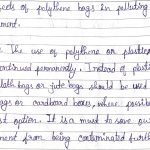 ects of polythene bags in polluting
ment.
The use of polythene or plastic
continued permanently. Instead of plastic
cloth bags or jute bags should be used
ags or cardboard boxes, where possible
st option. It is a must to save our
ment from being contaminated further